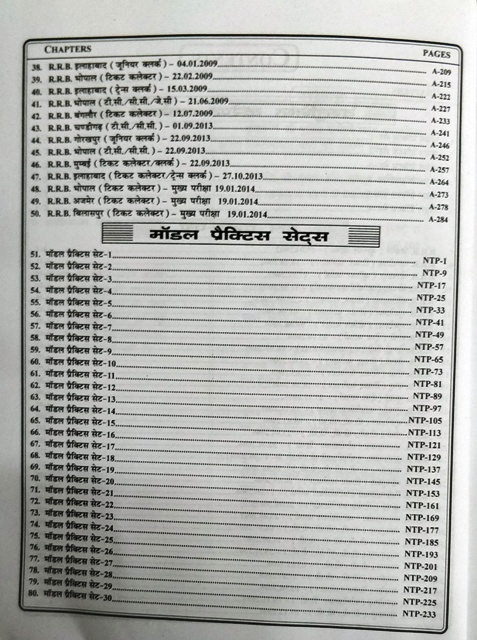 CHAPTERS PAGES
38. R.R.B. इलाहाबाद ( जुनियर क्लर्क ) – 04.01.2009 A-209
39. R.R.B. भोपाल ( टिकट कलेक्टर ) – 22.02.2009 A-215
40. R.R.B. इलाहाबाद ( ट्रेन्स क्लर्क ) – 15.03.2009 A-222
41. R.R.B. भोपाल ( टी.सी./सी.सी./जे.सी ) – 21.06.2009 A-227
42. R.R.B. बंगलौर ( टिकट कलेक्टर ) – 12.07.2009 A-233
43. R.R.B. चण्डीगढ़ ( टी.सी./सी.सी. ) – 01.09.2013 A-241
44. R.R.B. गोरखपुर ( जुनियर क्लर्क ) – 22.09.2013 A-246
45. R.R.B. भोपाल ( टी.सी./सी.सी. ) – 22.09.2013 A-252
46. R.R.B. मुम्बई ( टिकट कलेक्टर/क्लर्क ) – 22.09.2013 A-257
47. R.R.B. इलाहाबाद ( टिकट कलेक्टर/ट्रेन्स क्लर्क ) – 27.10.2013 A-264
48. R.R.B. भोपाल ( टिकट कलेक्टर ) – मुख्य परीक्षा 19.01.2014 A-273
49. R.R.B. अजमेर ( टिकट कलेक्टर ) – मुख्य परीक्षा 19.01.2014 A-278
50. R.R.B. बिलासपुर ( टिकट कलेक्टर ) – मुख्य परीक्षा 19.01.2014 A-284
मॉडल प्रैक्टिस सेट्स
51. मॉडल प्रैक्टिस सेट-1 NTP-1
52. मॉडल प्रैक्टिस सेट-2 NTP-9
53. मॉडल प्रैक्टिस सेट-3 NTP-17
54. मॉडल प्रैक्टिस सेट-4 NTP-25
55. मॉडल प्रैक्टिस सेट-5 NTP-33
56. मॉडल प्रैक्टिस सेट-6 NTP-41
57. मॉडल प्रैक्टिस सेट-7 NTP-49
58. मॉडल प्रैक्टिस सेट-8 NTP-57
59. मॉडल प्रैक्टिस सेट-9 NTP-65
60. मॉडल प्रैक्टिस सेट-10 NTP-73
61. मॉडल प्रैक्टिस सेट-11 NTP-81
62. मॉडल प्रैक्टिस सेट-12 NTP-89
63. मॉडल प्रैक्टिस सेट-13 NTP-97
64. मॉडल प्रैक्टिस सेट-14 NTP-105
65. मॉडल प्रैक्टिस सेट-15 NTP-113
66. मॉडल प्रैक्टिस सेट-16 NTP-121
67. मॉडल प्रैक्टिस सेट-17 NTP-129
68. मॉडल प्रैक्टिस सेट-18 NTP-137
69. मॉडल प्रैक्टिस सेट-19 NTP-145
70. मॉडल प्रैक्टिस सेट-20 NTP-153
71. मॉडल प्रैक्टिस सेट-21 NTP-161
72. मॉडल प्रैक्टिस सेट-22 NTP-169
73. मॉडल प्रैक्टिस सेट-23 NTP-177
74. मॉडल प्रैक्टिस सेट-24 NTP-185
75. मॉडल प्रैक्टिस सेट-25 NTP-193
76. मॉडल प्रैक्टिस सेट-26 NTP-201
77. मॉडल प्रैक्टिस सेट-27 NTP-209
78. मॉडल प्रैक्टिस सेट-28 NTP-217
79. मॉडल प्रैक्टिस सेट-29 NTP-225
80. मॉडल प्रैक्टिस सेट-30 NTP-233